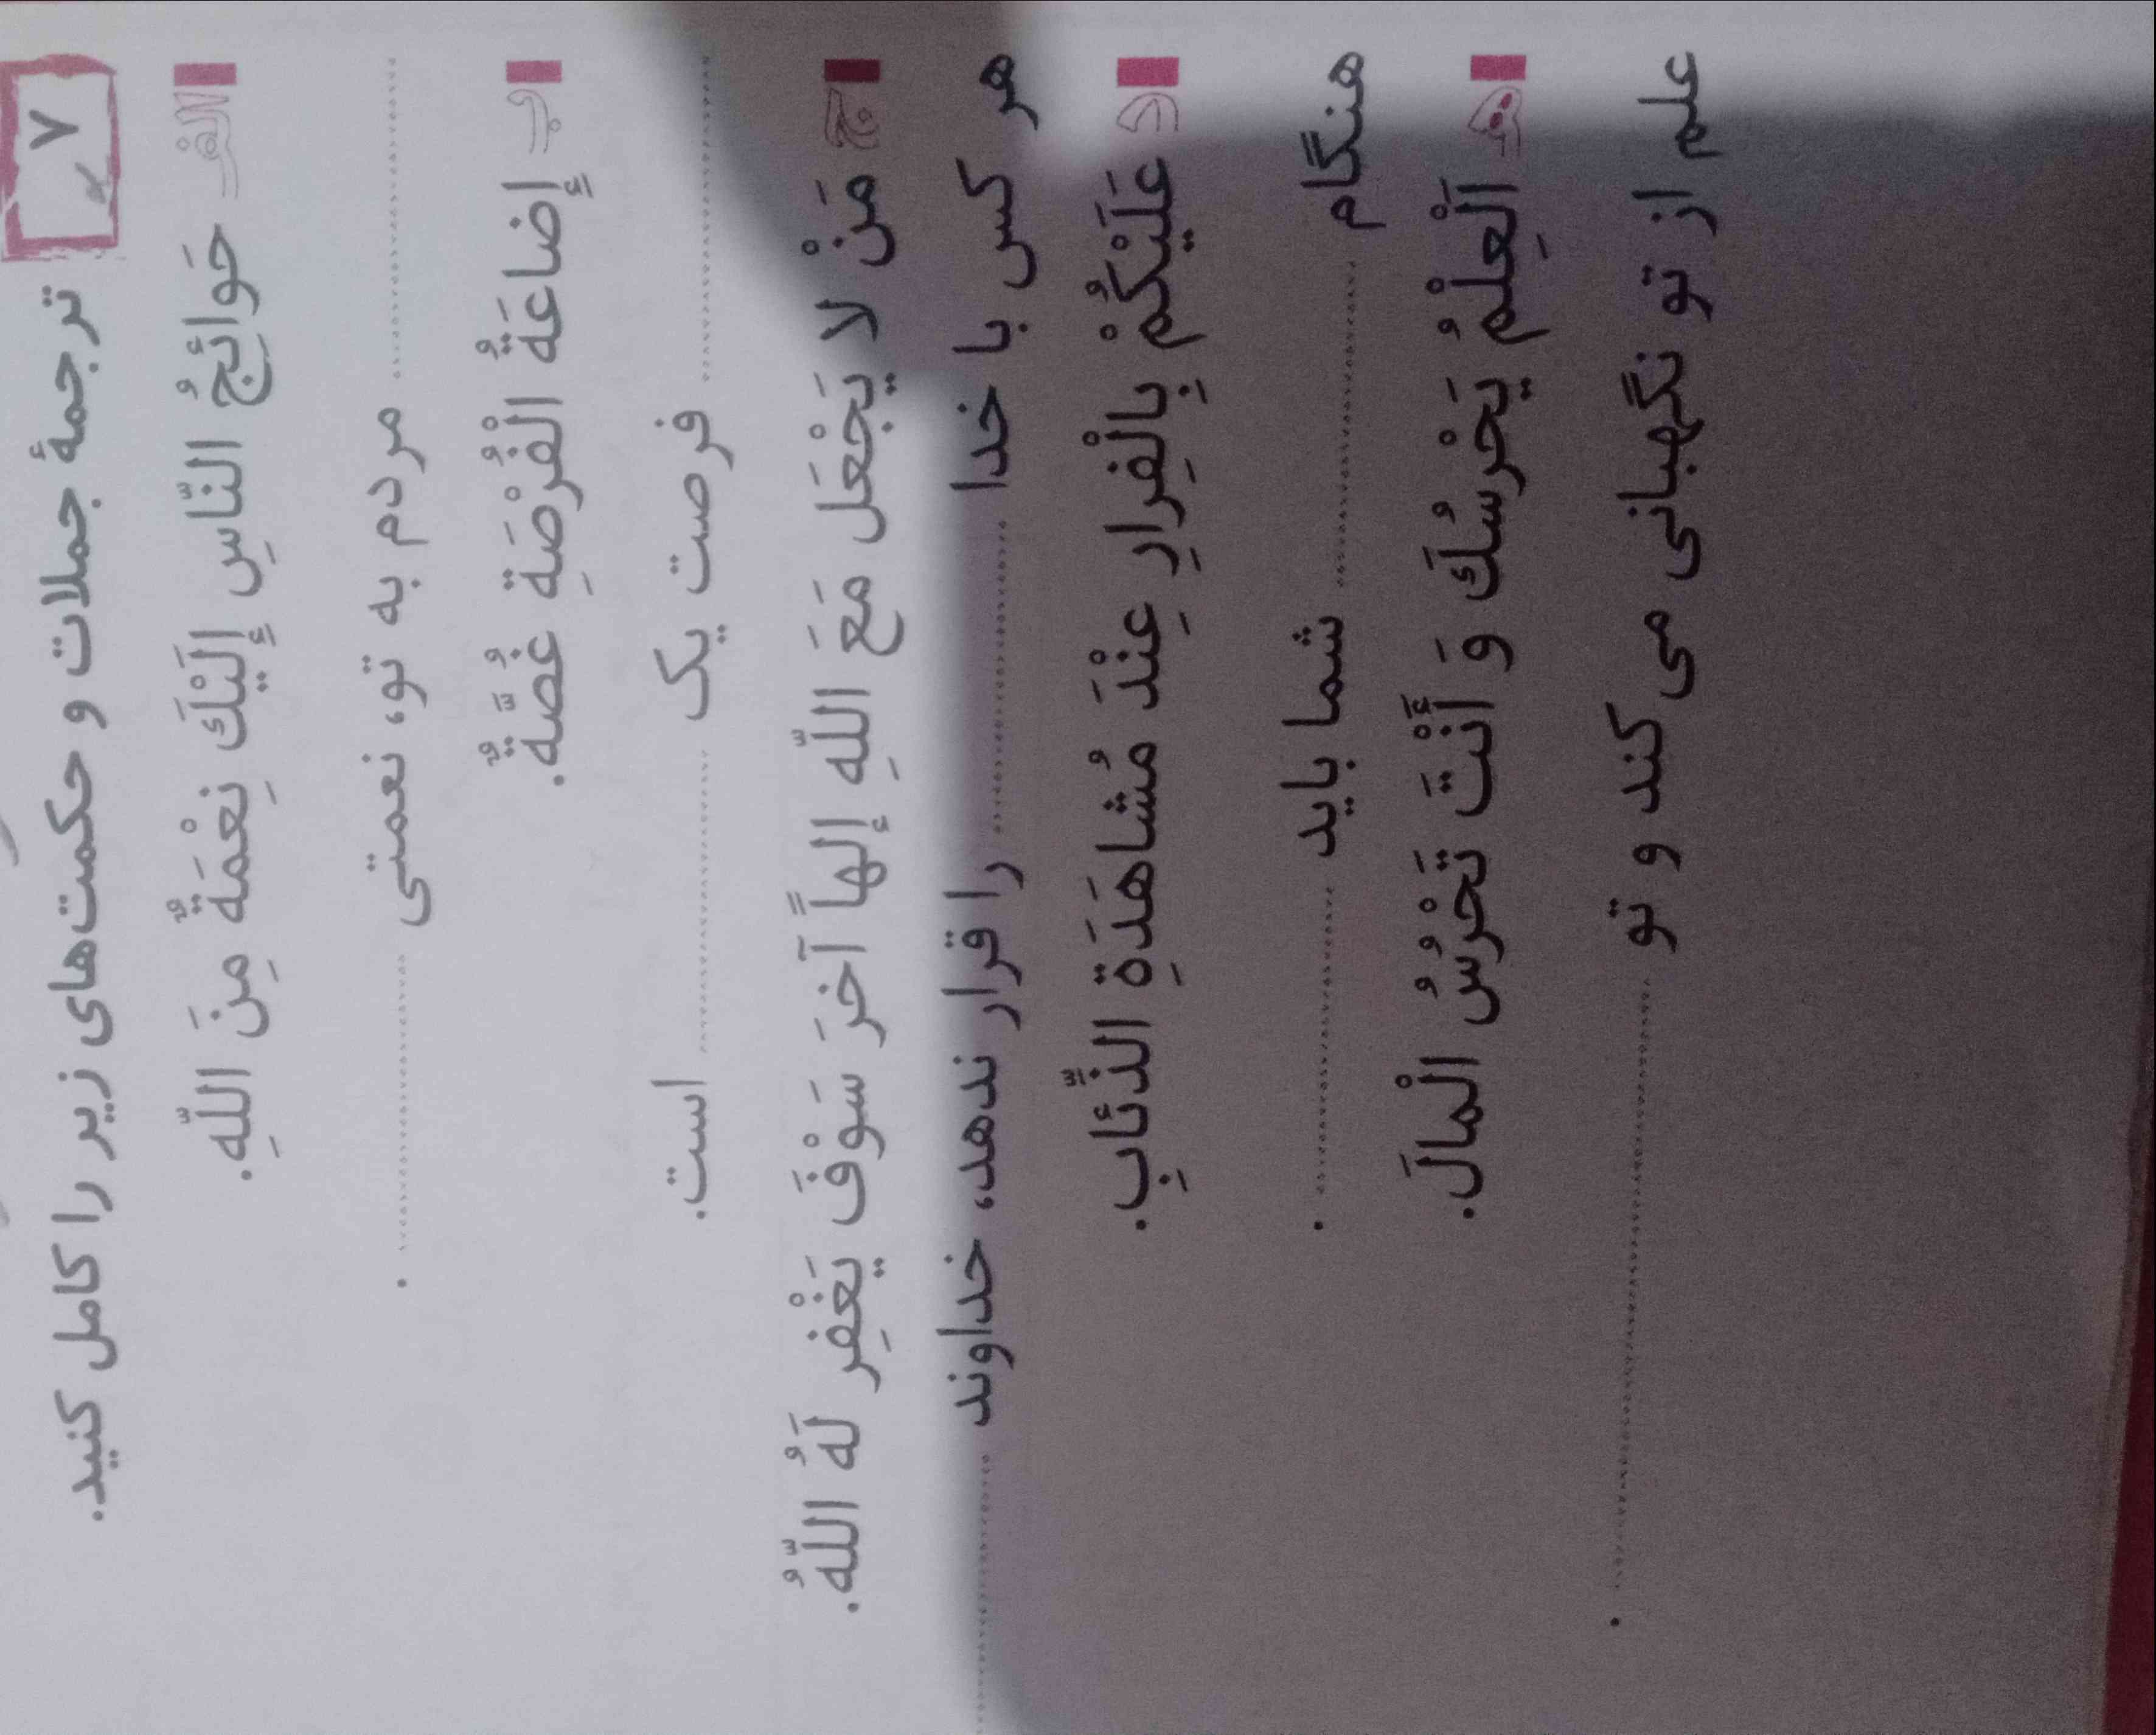 ۷ ترجمهٔ جملات و حکمت‌های زیر را کامل کنید.
الف حَوائِجُ النّاسِ إِلَيْكَ نِعْمَةٌ مِنَ اللّهِ.
.................... مردم به تو، نعمتی .................... .
ب إِضاعَةُ الْفُرْصَةِ غُصَّةٌ.
.................... فرصت یک .................... است.
ج مَنْ لا يَجْعَل مَعَ اللّهِ إِلهاً آخرَ سَوْفَ يَغْفِر لَهُ اللّهُ.
هر کس با خدا .................... را قرار ندهد، خداوند ....................
د عَلَيْكُمْ بِالْفِرارِ عِنْدَ مُشاهَدَةِ الذِّئابِ.
هنگام .................... شما باید .................... .
هـ اَلْعِلْمُ يَحْرسُكَ وَ أَنْتَ تَحْرُسُ الْمالَ.
علم از تو نگهبانی می‌کند و تو .................... .